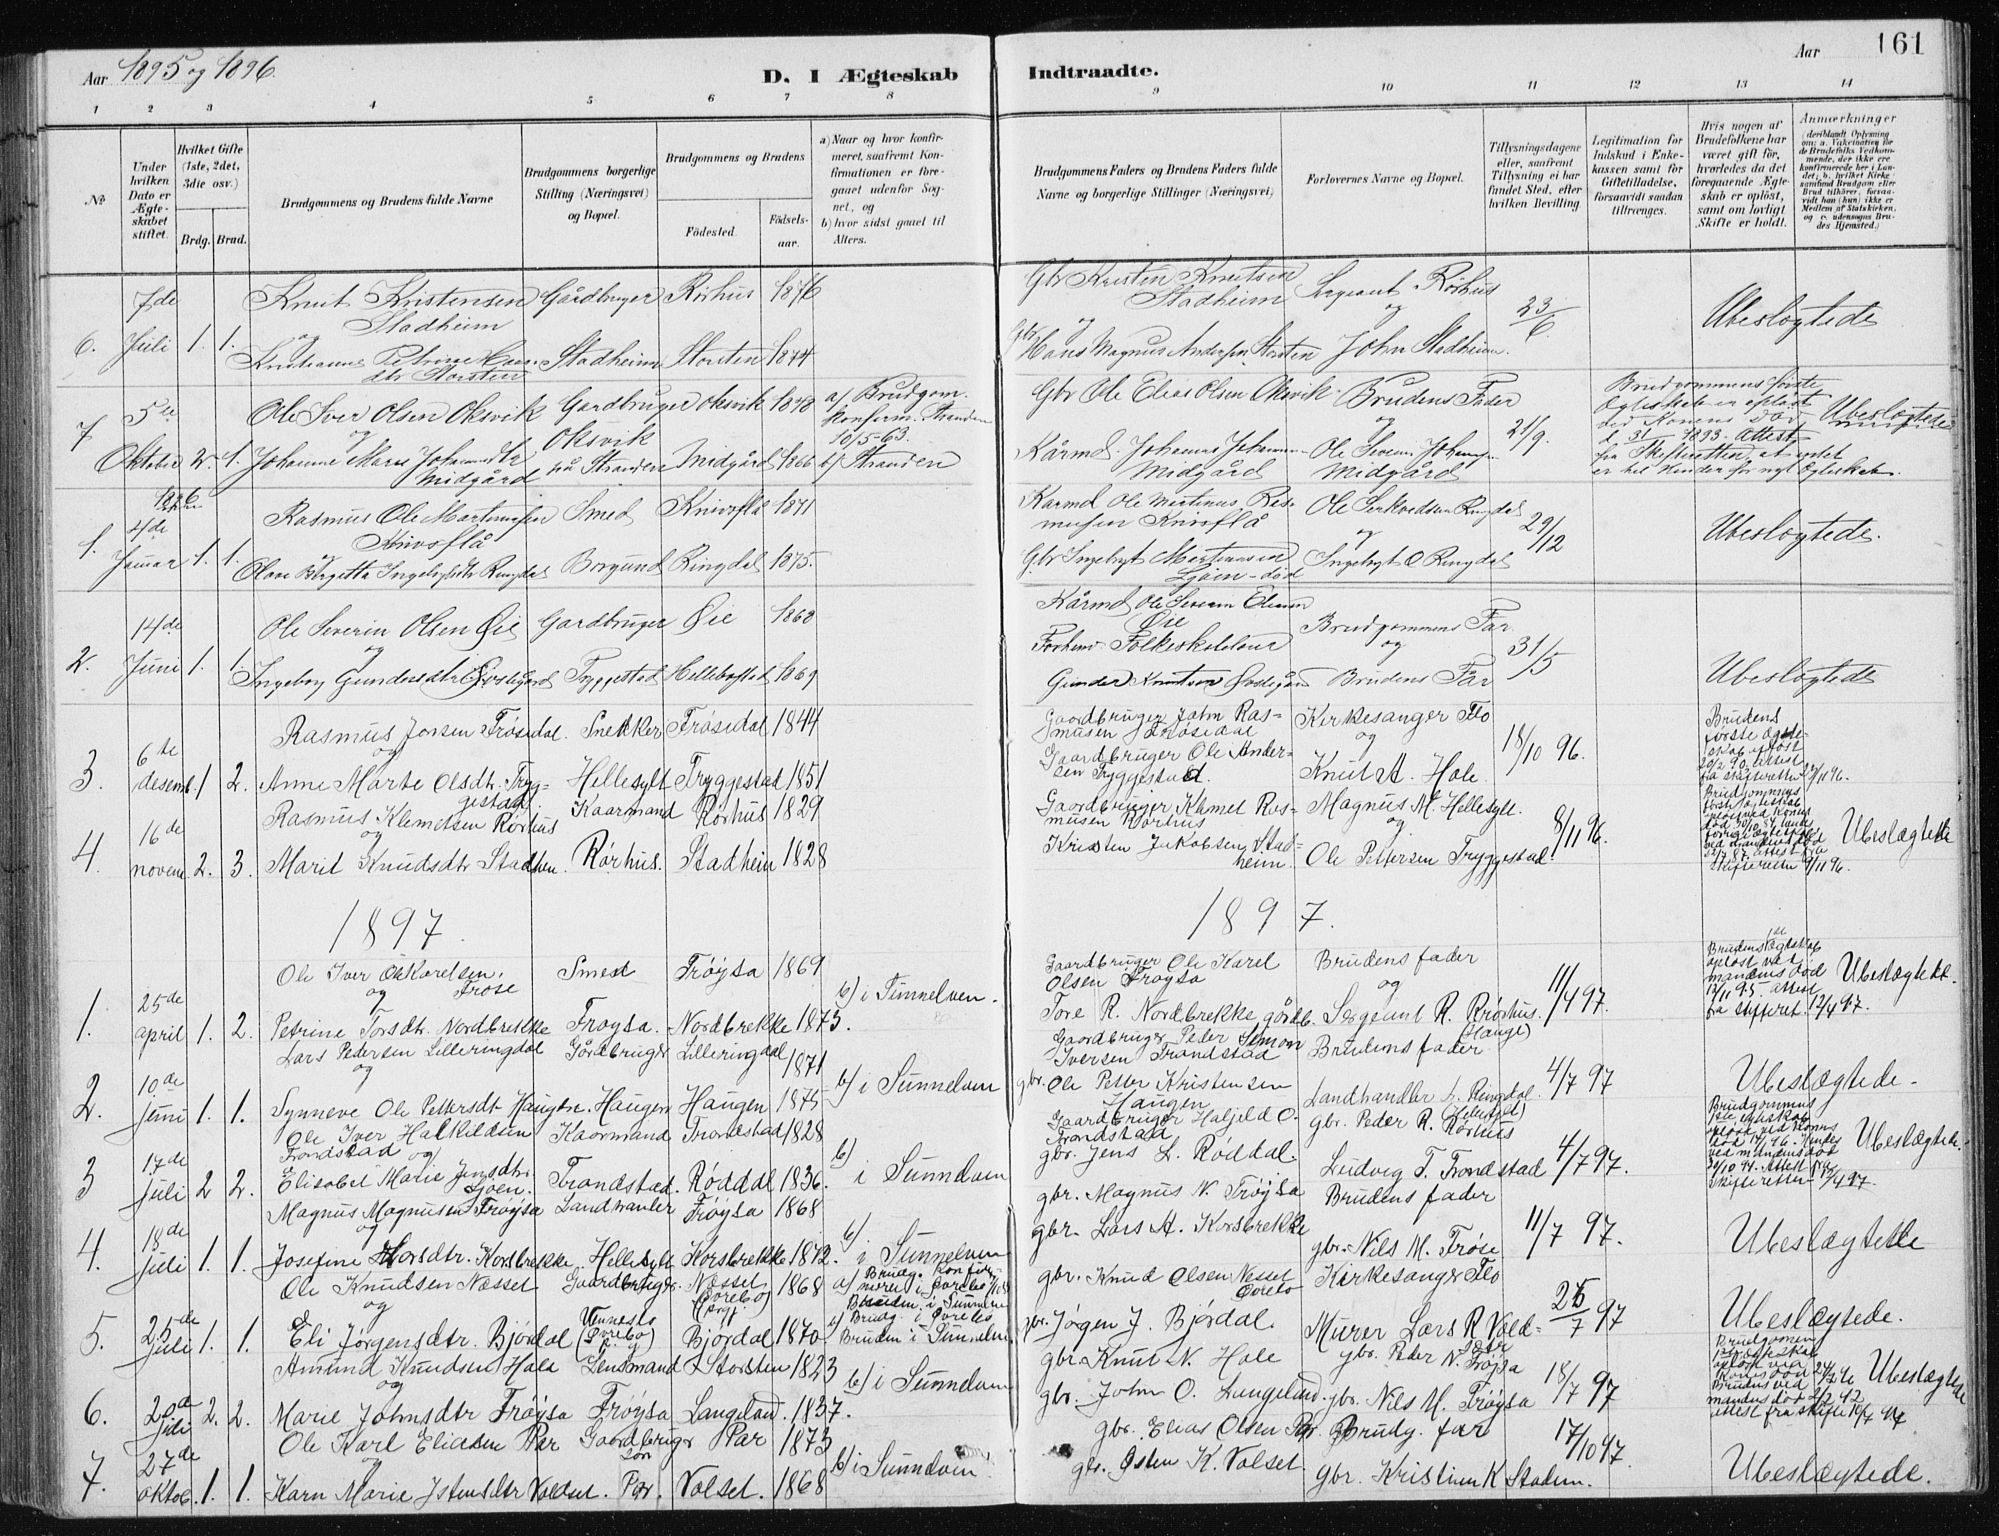 Aar 1895 og 1896.
D. I Ægteskab Indtraadte.
Aar 161
1 2 3 4 5 6 7 8 9 10 11 12 13 14
No
Under hvilken Dato er Ægteskabet stiftet.
Hvilket Gifte (1ste, 2det, 3die osv.)
Brdg. Brud.
Brudgommens og Brudens fulde Navne
Brudgommens borgerlige Stilling (Næringsvei) og Bopæl.
Brudgommens og Brudens
Fødested. Fødselsaar.
a) Naar og hvor konfirmeret, saafremt Konfirmationen er foregaaet udenfor Sognet, og
b) hvor sidst gaaet til Alters.
Brudgommens Faders og Brudens Faders fulde Navne og borgerlige Stillinger (Næringsvei)
Forlovernes Navne og Bopæl.
Tillysningsdagene eller, saafremt Tillysning ei har fundet Sted, efter hvilken Bevilling.
Legitimation for Indskud i Enkekassen samt for Giftetilladelse, forsaavidt saadan tiltrænges.
Hvis nogen af Brudefolkene har været gift før, hvorledes da det foregaaende Ægteskab er opløst, samt om lovligt Skifte er holdt.
Anmærkninger (deriblandt Oplysning om: a. Vakcination for de Brudefolks Vedkommende, der ikke ere konfirmerede her i Landet; b. hvilket Kirkesamfund Brudgom eller Brud tilhører, forsaavidt han (hun) ikke er Medlem af Statskirken, og c. udensogns Brudes Hjemsted.)
7de Knut Kristensen Gårdbruger Rørhus 1876 Gbr Kristen Knutsen Stadheim Sergeant Rørhus
6. Juli 1. 1. og Stadheim og og 23/6 Ubeslægtede
Kristianne Petrine Stadheim Storsten 1874 Hans Magnus Andersen Storsten John Stadheim.
dtr Storsten
5te Ole Iver Olsen Oksvik Gardbruger Oksvik 1848 a/ Brudgom. Gbr Ole Elias Olsen Oksvik Brudens Fader Brudgommens første
7 og Oksvik konferm. Stranden 10/5-63. og 21/9. Ægteskab er opløst ved Konens Død Ubeslægtede
Oktober 2. 1. Johanne Marie Johannesdtr på Stranden Midgård 1866 b/ Stranden Kårmd. Johannes Midgård Ole Severin Midgård d 31/ 1893. Attest fra Skifteretten, at intet
Midgård er til Hinder for nyt Ægteskab.
1896
4de Rasmus Ole Martinusen Smed Knivsflå 1871 Karmd Ole Martinus Rasmusen Knivsflå Ole Ringdal
1. Januar 1. 1. Knivsflå og 29/12 Ubeslægtede.
Olave Bergitta Ringdal Borgund Ringdal 1875. Gbr Ingebrigt Martinussen Ljøen - død Ingebrigt O Ringdal
14de Ole Severin Olsen Øie Gardbruger Øie 1868 Kårmd Ole Severin Øie Brudgommens Far
2. Juni 1. 1. og Forhenv Folkeskolelærer og 31/5 Ubeslægtede
Ingeborg Gundersdtr Øvstegård Tryggestad Hellebostad 1869 Gunder Knutsen Øvstegård Brudens Far
6te Rasmus Jonsen Frøisedal. Snekker Frøisedal 1844 Gaardbruger John Rasmusen Frøisedal Kirkesanger Flo Brudens første
3. og Gaardbruger Ole Andersen Tryggestad. og 18/10 96. ægteskab opløst 20/2 90. attest
desemb. 1 2. Anne Marte Olsdtr. Tryggestad. Hellesylt Tryggestad 1851 Knut A. Hole. fra skifteretten /11 96.
16de Rasmus Klemetsen Rørhus Kaarmand Rørhus 1829 Gaardbruger Klemet Rasmusen Rørhus Magnus M. Hellesylt. Brudgommens
4. og og 8/11 96. Ubeslægtede
novem 2. 3. Marit Knudsdtr Stadhein. Rørhus. Stadhein 1828 Kristen Jakobsen Stadheim. Ole Pettersen Tryggestad. Skifteretten /11 96.
1897. 1897.
25de Ole Iver OleKarelsen. Smed Frøysa 1869 Gaardbruger Ole Karel Olsen Frøysa Brudens fader Brudens 1de ægteskab
1. og Frøse b) i Sunnelven. og 11/4 97. opløst ved mandens død Ubeslægtede.
april 1. 2. Petrine Torsdtr. Nordbrekke Frøysa. Nordbrekke 1873. Tore R. Nordbrekke gårdb. Sergeant R. Rørhus. (Hauge) 12/11 95. attest fra skifteret. 12/4 97.
10de Lars Pedersen Lilleringdal Gårdbruger Lilleringdal 1871 Gaardbruger Peder Simon Iversen Trandstad Brudens fader
2. og b/ i Sunnelven 4/7 97 Ubeslægtede.
juni 1. 1. Synneve Ole Pettersdt Haugen. Haugen Haugen 1875 gbr. Ole Petter Kristensen Haugen Landhandler L. Ringdal. (Hellesylt)
17de Ole Iver Halkildsen Trondstad Kaarmand Trondstad 1828 Gaardbruger Haljeld O. Trondstad gbr. Peder R. Rørhus Brudgommens
3 og b/ i Sunnelven 4/7 97. 1ste ægteskab opløst ved konens død Ubeslægtede.
juli 2 2. Elisabet Marie Jensdtr. Ljøen. Trandstad. Røddal 1836. gbr. Jens L. Røddal. Ludvig T. Trondstad ved mandens død 30/10 94. Attest skifteretten /4 97.
18de Magnus Magnusen Frøysa Landhanler Frøysa 1868 gbr. Magnus N. Frøysa Brudens fader
4. og b/ i Sunnelven 11/7 97. Ubeslægtede
juli 1. 1. Josefine Larsdtr. Korsbrekke. Hellesylt Korsbrekke 1872. gbr. Lars A. Korsbrekke gbr. Nils M. Frøse
Ole Knudsen Nesset Gaardbruger. Nesset (Øvrebø) 1868 a/ Brudg. konfirmeret i Øvrebø gbr. Knud Olsen Nesset Øvrebø Kirkesanger Flo
5. 25de og Vennesla (Øvrebø) Bruden i Sunnelven 25/7 97 Ubeslægtede.
juli 1. 1. Eli Jørgensdtr. Bjørdal Bjørdal 1870 b/ Brudg. i Øvrebø Bruden i Sunnelven gbr. Jørgen J. Bjørdal. Murer Lars R Voldsæter
Amund Knudsen Hole Lensmand Storsten 1823 gbr. Knut N. Hole gbr. Peder N. Frøjsa Brudgomen
6. 20de og b/ i Sunnelven 18/7 97 Ubeslægtede
juli 2. 2. Marie Johnsdtr Frøysa Frøysa Langeland. 1837. gbr. John O. Langeland. gbr. Nils M. Frøysa mandens død 2/2 92 attest fra skifte 10/7 97
27de Ole Karl Eliasen Par Gaardbruger Søn Par 1873 gbr. Elias Olsen Par Brudg. far
7. og b/ i Sunnelven 17/10 97. Ubeslægtede.
oktob. 1. 1. Karn Marie Istensdtr Volset. Par. Volset. 1868 gbr. Østen K. Volset. gbr. Kristian K Stadem.